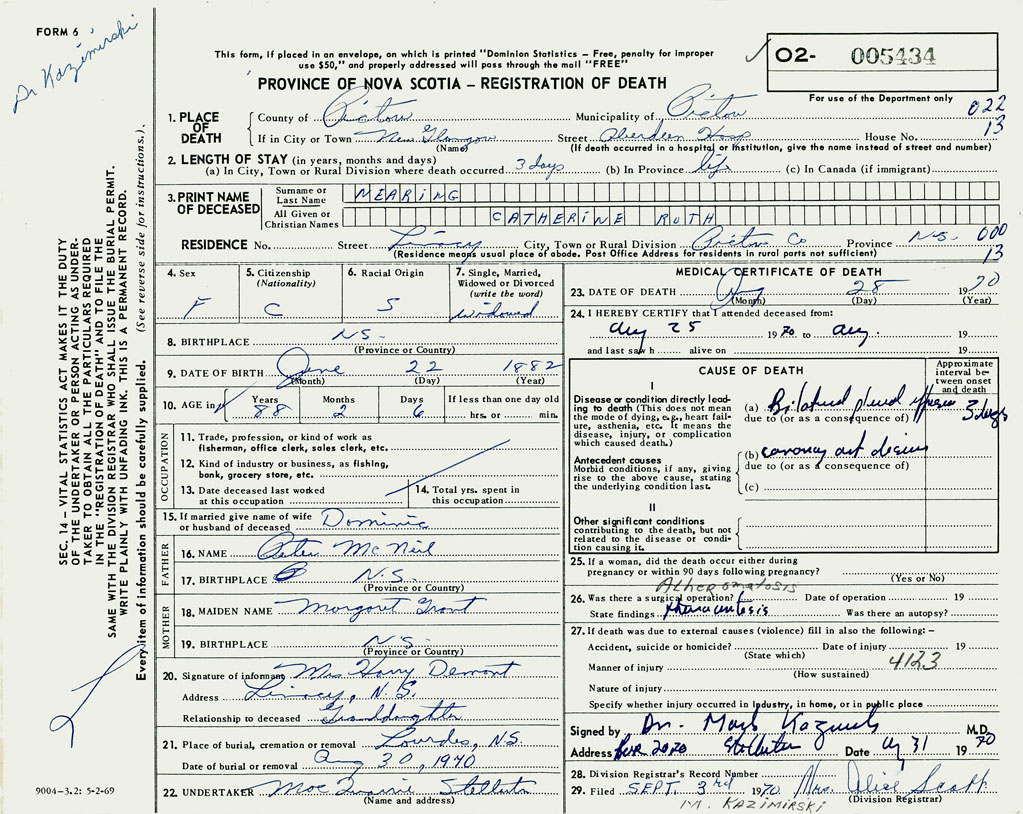 FORM 6
Dr Kazimirski
This form, if placed in an envelope, on which is printed "Dominion Statistics – Free, penalty for improper
use $50," and properly addressed will pass through the mail "FREE"
PROVINCE OF NOVA SCOTIA – REGISTRATION OF DEATH
O2- 005434
For use of the Department only
022
13
1. PLACE OF DEATH
County of Pictou Municipality of Pictou
If in City or Town New Glasgow Street Aberdeen Hosp House No.
(Name) (If death occurred in a hospital or institution, give the name instead of street and number)
2. LENGTH OF STAY (in years, months and days)
(a) In City, Town or Rural Division where death occurred 3 days (b) In Province life (c) In Canada (if immigrant)
3. PRINT NAME OF DECEASED
Surname or Last Name MEARING
All Given or Christian Names CATHERINE RUTH
RESIDENCE No. Street Linacy City, Town or Rural Division Pictou Co Province N.S. 000
(Residence means usual place of abode. Post Office Address for residents in rural parts not sufficient) 13
4. Sex F
5. Citizenship (Nationality) C
6. Racial Origin S
7. Single, Married, Widowed or Divorced (write the word) widowed
8. BIRTHPLACE N.S.
(Province or Country)
9. DATE OF BIRTH June 22 1882
(Month) (Day) (Year)
10. AGE in Years 88 Months 2 Days 6 If less than one day old hrs. or min.
OCCUPATION
11. Trade, profession, or kind of work as
fisherman, office clerk, sales clerk, etc.
12. Kind of industry or business, as fishing,
bank, grocery store, etc.
13. Date deceased last worked
at this occupation
14. Total yrs. spent in
this occupation
15. If married give name of wife
or husband of deceased Dominic
FATHER
16. NAME Peter McNeil
17. BIRTHPLACE N.S.
(Province or Country)
MOTHER
18. MAIDEN NAME Margaret Grant
19. BIRTHPLACE N.S.
(Province or Country)
20. Signature of informant Mrs Harry Demont
Address Linacy, N.S.
Relationship to deceased Granddaughter
21. Place of burial, cremation or removal Lourdes, N.S.
Date of burial or removal Aug 30, 1970
22. UNDERTAKER Stellarton
(Name and address)
MEDICAL CERTIFICATE OF DEATH
23. DATE OF DEATH Aug 28 1970
(Month) (Day) (Year)
24. I HEREBY CERTIFY that I attended deceased from:
Aug 25 1970 to Aug. 19
and last saw h alive on 19
CAUSE OF DEATH
Approximate interval between onset and death
I
Disease or condition directly leading to death (This does not mean the mode of dying, e.g., heart failure, asthenia, etc. It means the disease, injury, or complication which caused death.)
(a) Bilateral 3 days
due to (or as a consequence of)
Antecedent causes
Morbid conditions, if any, giving rise to the above cause, stating the underlying condition last.
(b) coronary art disease
due to (or as a consequence of)
(c)
II
Other significant conditions
contributing to the death, but not related to the disease or condition causing it.
25. If a woman, did the death occur either during
pregnancy or within 90 days following pregnancy?
(Yes or No)
Atheromatosis
26. Was there a surgical operation? Date of operation 19
State findings Was there an autopsy?
27. If death was due to external causes (violence) fill in also the following: –
Accident, suicide or homicide? Date of injury 19
(State which)
Manner of injury 412.3
(How sustained)
Nature of injury
Specify whether injury occurred in Industry, in home, or in public place
Signed by M.D.
Address Box 2020 Stellarton Date Aug 31 1970
28. Division Registrar's Record Number
29. Filed SEPT. 3rd 1970 Mrs. Alice Scott
(Division Registrar)
M. KAZIMIRSKI
SEC. 14 – VITAL STATISTICS ACT MAKES IT THE DUTY
OF THE UNDERTAKER OR PERSON ACTING AS UNDER-
TAKER TO OBTAIN ALL THE PARTICULARS REQUIRED
IN THE "REGISTRATION OF DEATH" AND TO FILE THE
SAME WITH THE DIVISION REGISTRAR WHO SHALL ISSUE THE BURIAL PERMIT.
WRITE PLAINLY WITH UNFADING INK. THIS IS A PERMANENT RECORD.
Every item of information should be carefully supplied. (See reverse side for instructions.).
9004-3.2: 5-2-69